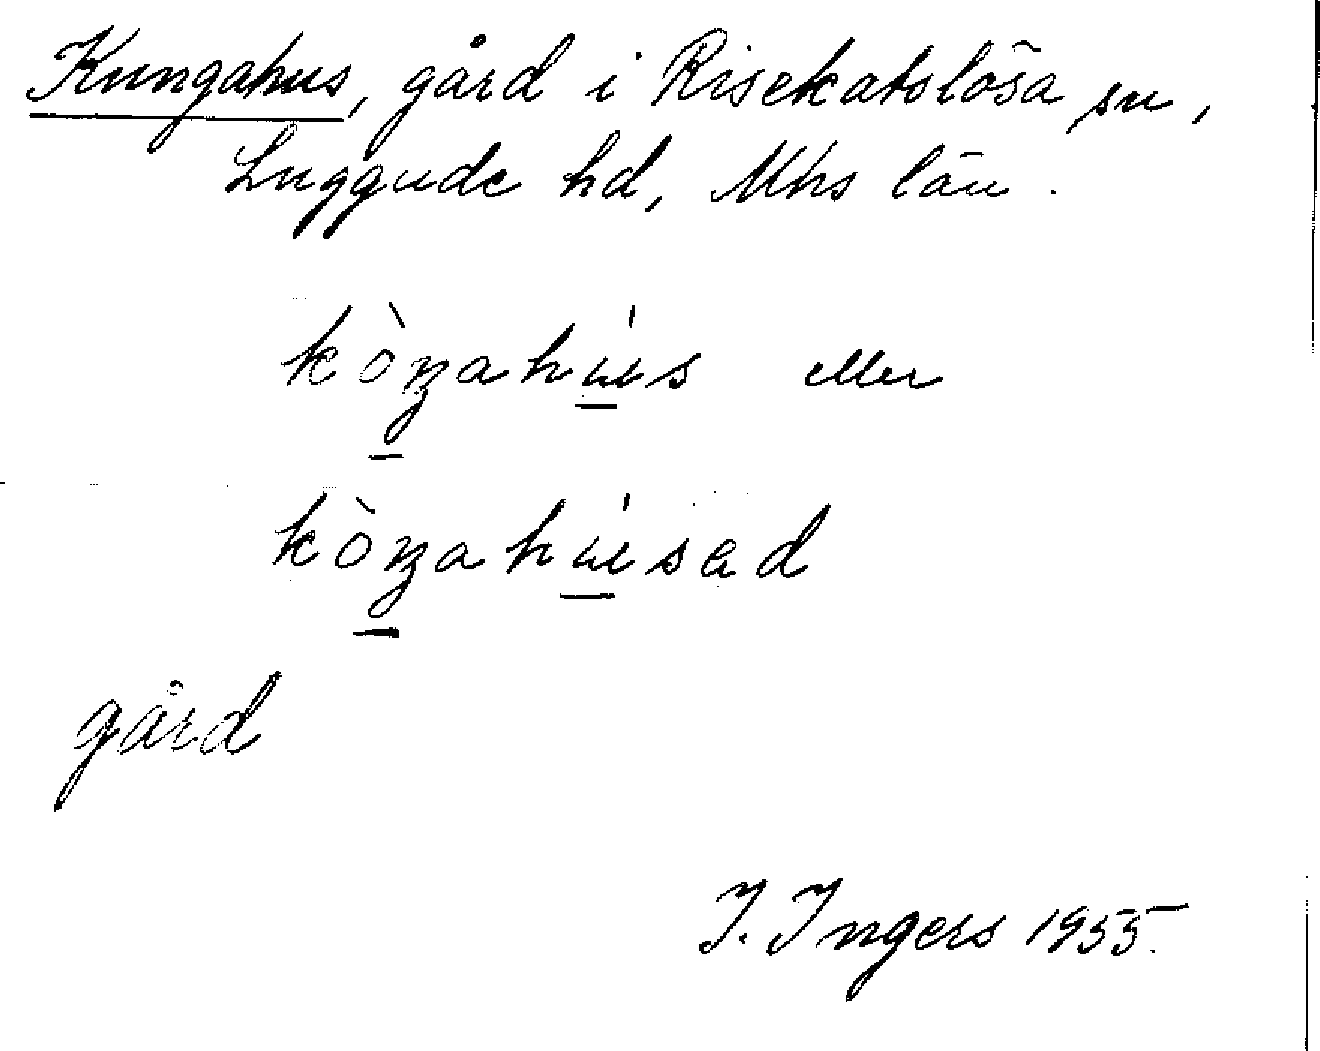 Kungahus, gård i Risekatslösa sn,
Luggude hd, Mhs län.
kòŋahús eller
kòŋahúsad
gård
I. Ingers 1955.